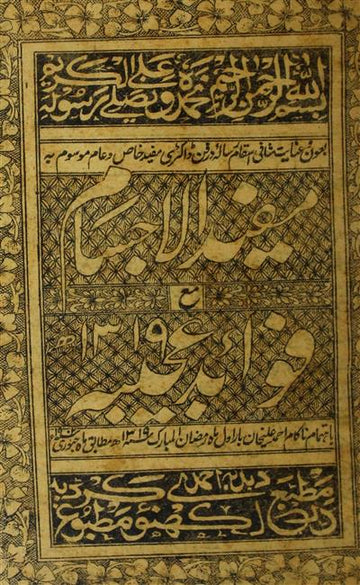 بسم الله الرحمن الرحیم نحمده و نصلی علی رسوله الکریم
بعون عنایت شافی اسقام رساله در فن ڈاکٹری مفید خاص و عام موسوم به
مفید الاجسام
مع
فواید عجیبه ۱۳۱۹ھ
باہتمام ناکام احمد علیخان بار اول ماہ رمضان المبارک ۱۳۱۹ھ مطابق ماہ جنوری ۱۹۰۲
مطبع دبدبه احمدی لکھنؤ مطبوع گردید